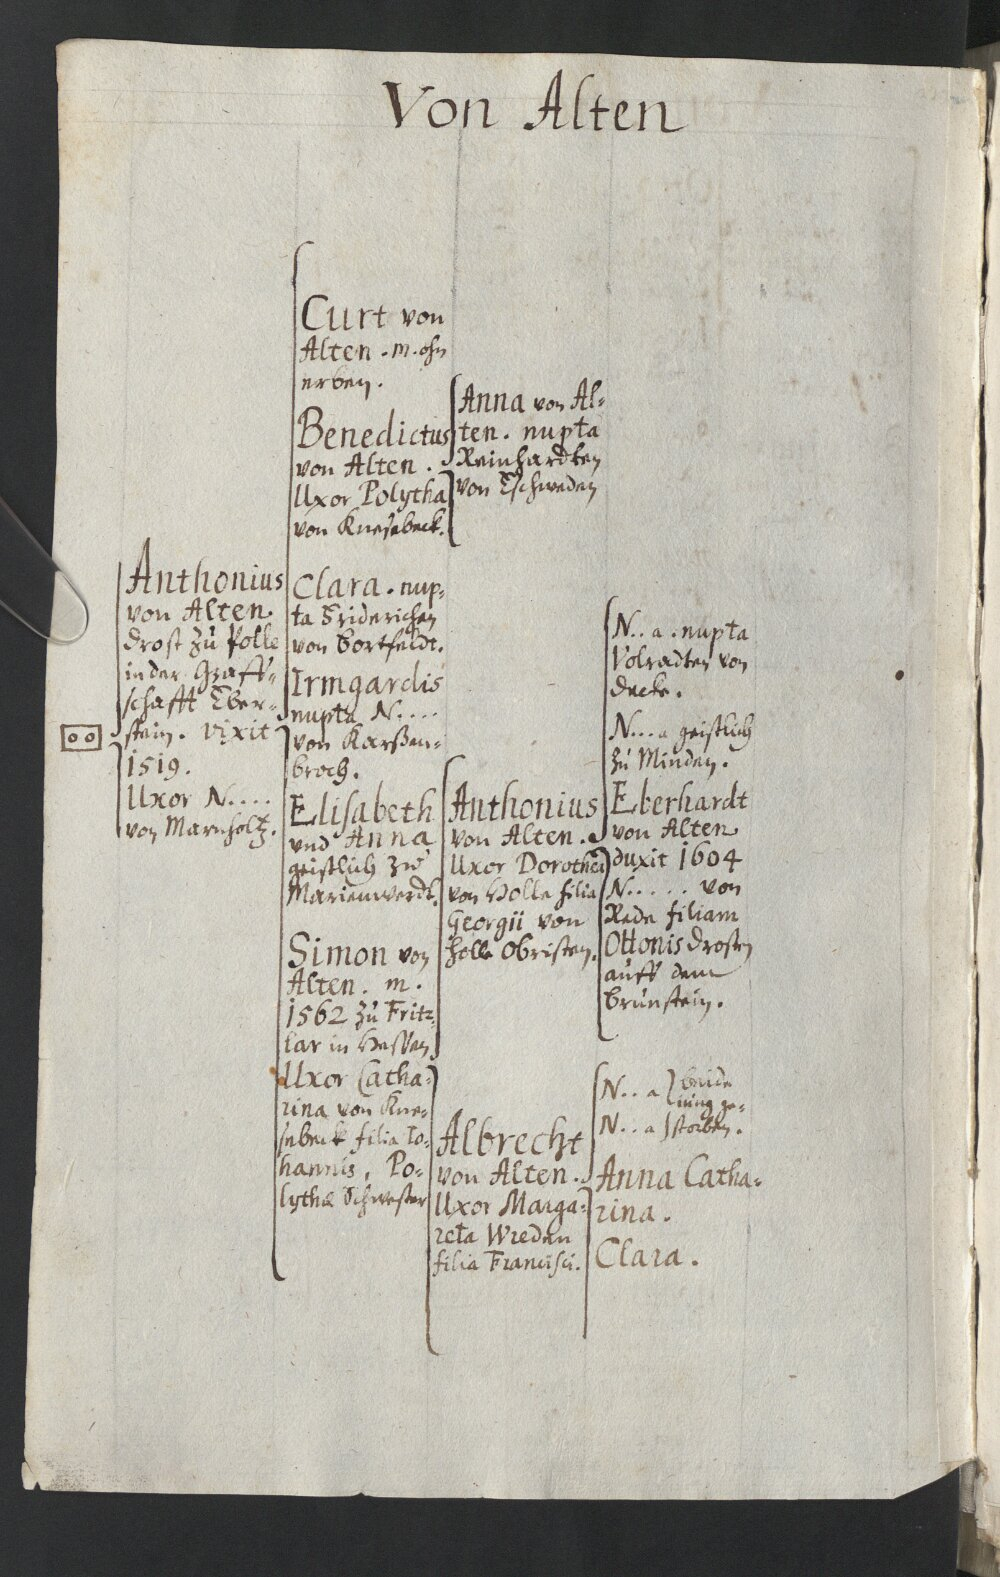 Von Alten
Anthonius
von Alten.
Drost zu Polle
in der Graff-
schafft Eber-
stein. vixit
1519.
Uxor N....
von Marnholtz.
Curt von
Alten. m. ohn
erben.
Benedictus
von Alten.
Uxor Polytha
von Knesebeck.
Clara. nup-
ta Friderichen
von Bortfeldt.
Irmgardis
nupta N....
von Karßen-
broch.
Elisabeth
und Anna
geistlich zu
Marienwerdt.
Simon von
Alten. m.
1562 zu Fritz-
lar in Hessen
Uxor Catha-
rina von Kne-
sebeck filia Io-
hannis, Po-
lythæ Schwester
Anna von Al-
ten. nupta
Reinhardten
von Tschweden
Anthonius
von Alten.
Uxor Dorothea
von Holle filia
Georgii von
Holle Obristen.
Albrecht
von Alten.
Uxor Marga-
reta Wreden
filia Francisci.
N..a. nupta
Volradten von
Decke.
N...a geistlich
zu Minden.
Eberhardt
von Alten
duxit 1604
N..... von
Rede filiam
Ottonis Drosten
auff dem
Brunstein.
N..a beide
iung ge-
N..a storben.
Anna Catha-
rina.
Clara.